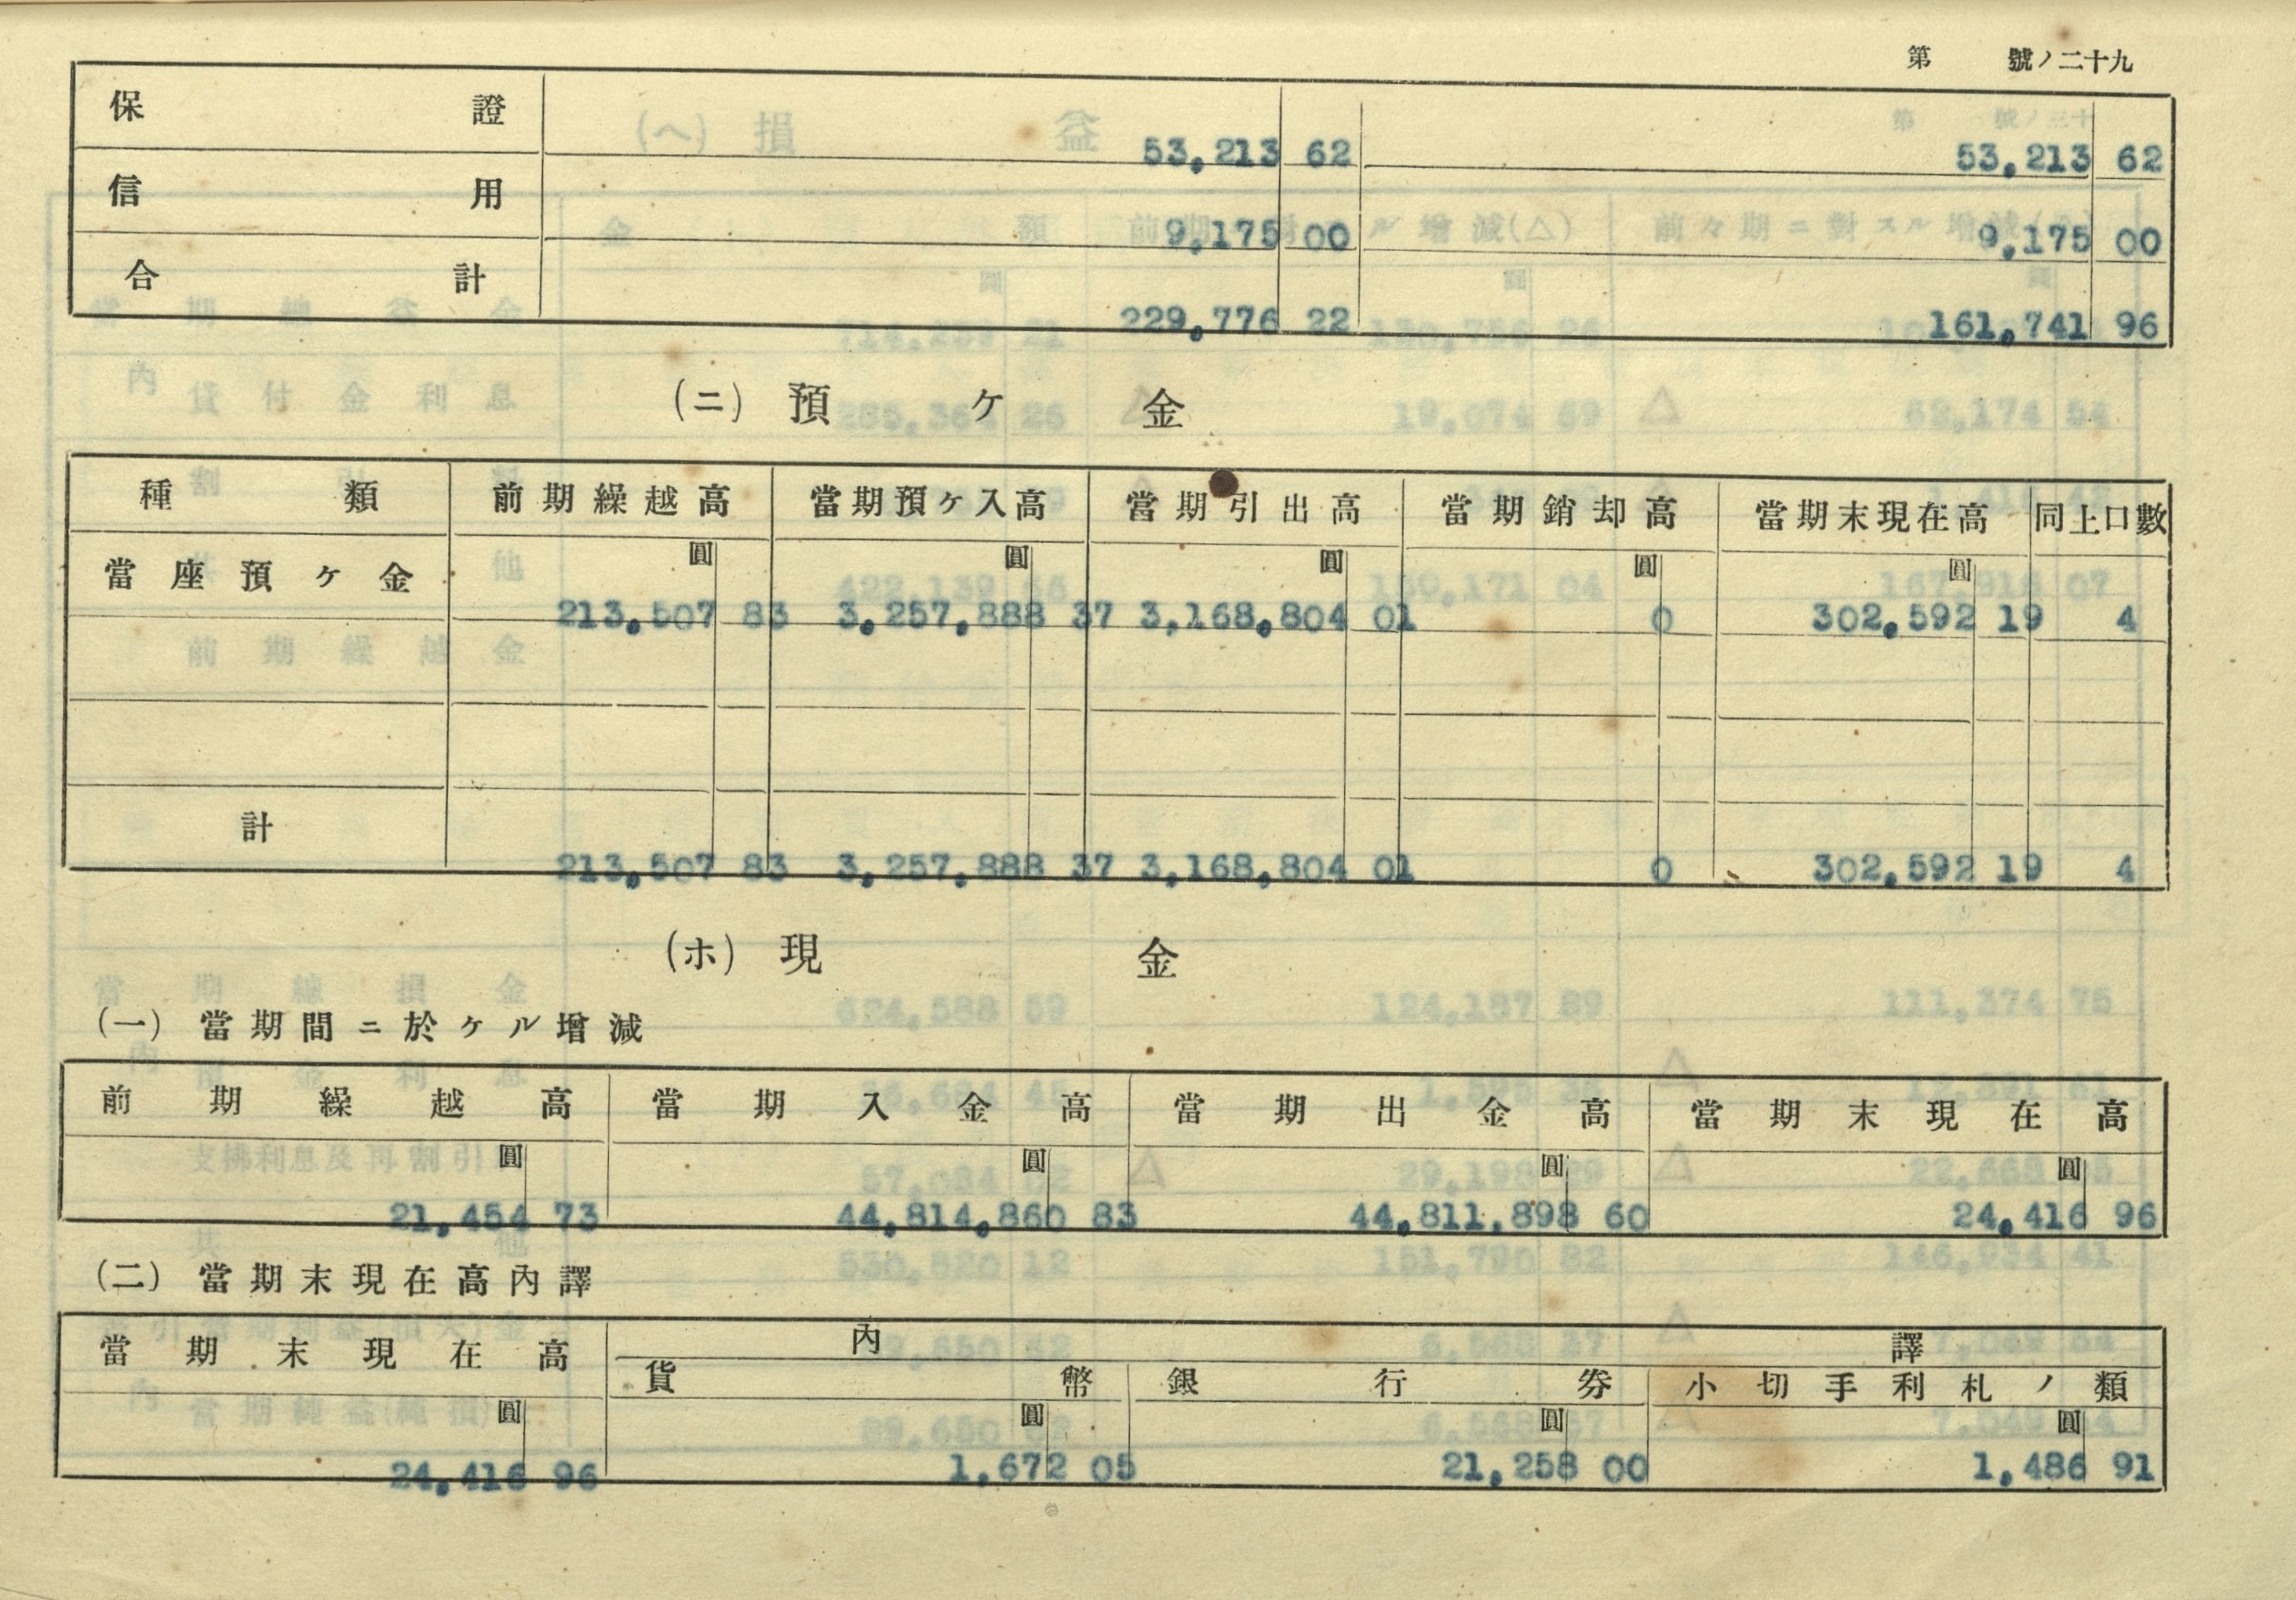 第 號ノ二十九
保證 53,213 62 53,213 62
信用 9,175 00 9,175 00
合計 229,776 22 161,741 96
(ニ) 預ケ金
種類 前期繰越高 當期預ケ入高 當期引出高 當期銷却高 當期末現在高 同上口數
圓 圓 圓 圓 圓
當座預ケ金 213,507 83 3,257,888 37 3,168,804 01 0 302,592 19 4
計 213,507 83 3,257,888 37 3,168,804 01 0 302,592 19 4
(ホ) 現金
(一) 當期間ニ於ケル增減
前期繰越高 當期入金高 當期出金高 當期末現在高
圓 圓 圓 圓
21,454 73 44,814,860 83 44,811,898 60 24,416 96
(二) 當期末現在高內譯
當期末現在高 內譯
貨幣 銀行券 小切手利札ノ類
圓 圓 圓 圓
24,416 96 1,672 05 21,258 00 1,486 91